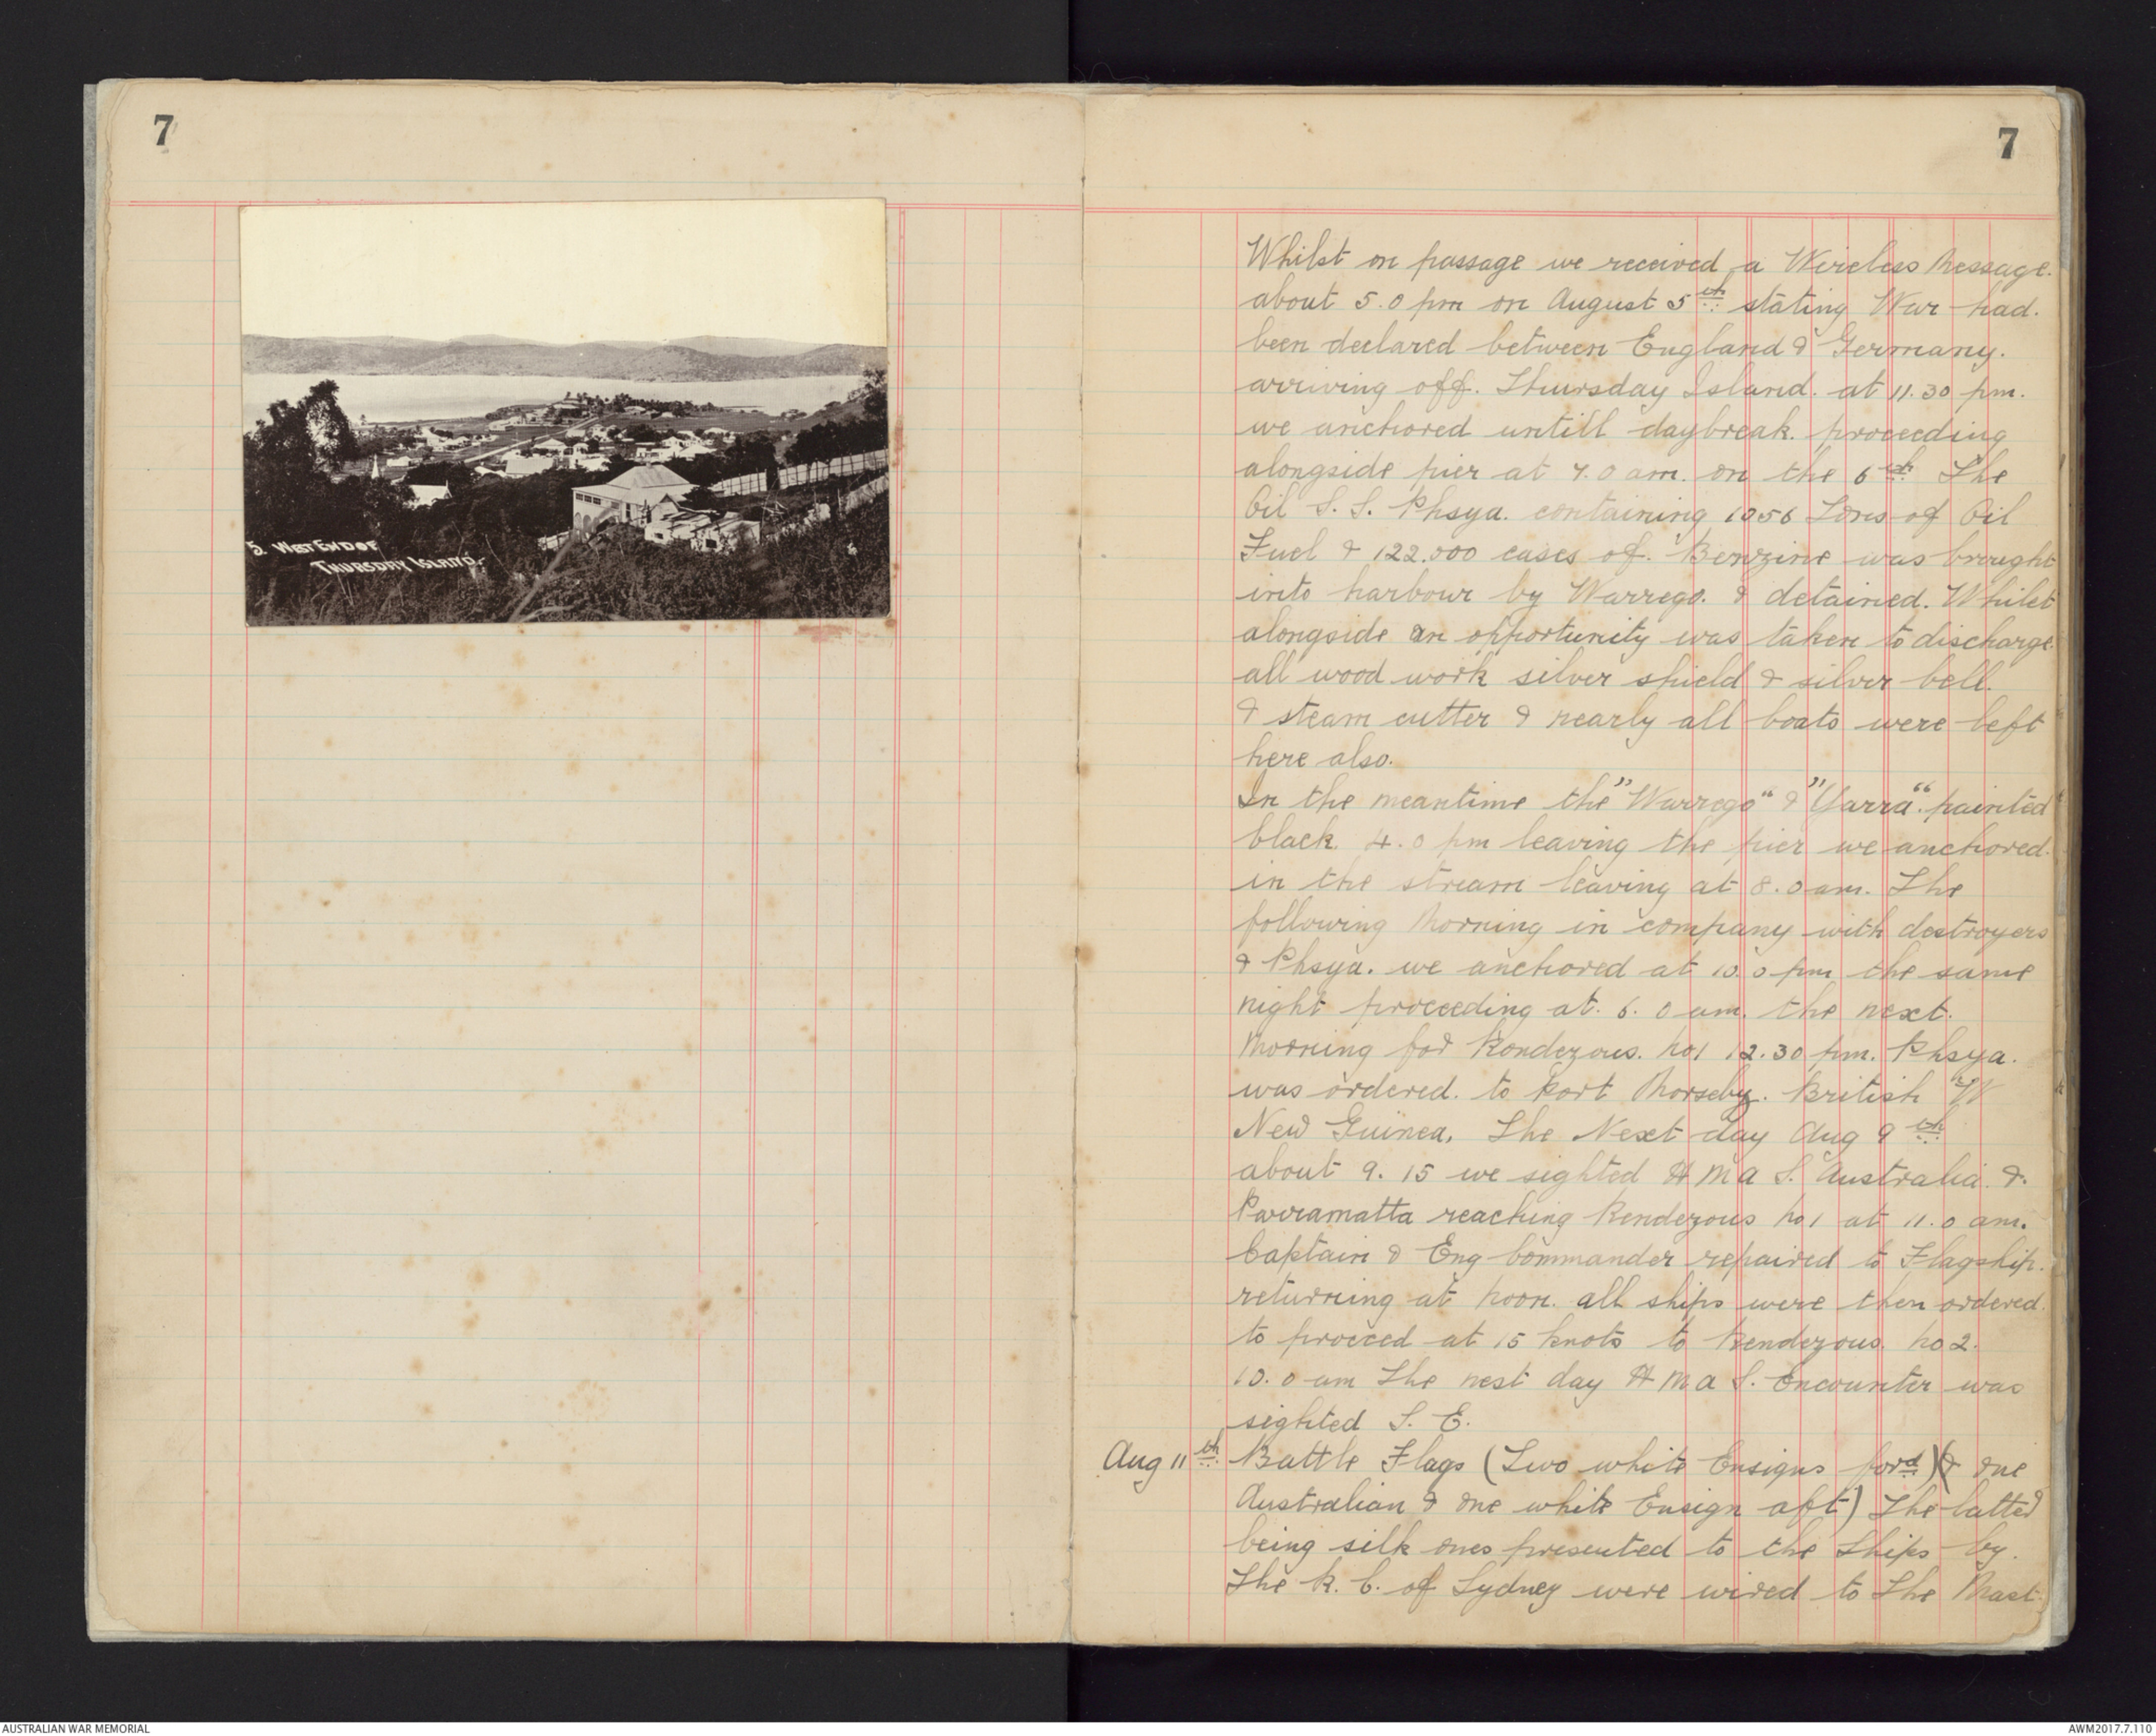 7
5. WEST END OF
THURSDAY ISLAND.
7
Whilst on passage we received a Wireless Message.
about 5.0 pm on August 5th stating War had.
been declared between England & Germany.
arriving off. Thursday Island. at 11.30 pm.
we anchored untill daybreak. proceeding
alongside pier at 7.0 am. on the 6th The
Oil S.S. Phsya. containing 1056 Tons of Oil
Fuel & 122.000 cases of. Benzine was brought
into harbour by Warrego. & detained. Whilst
alongside an opportunity was taken to discharge.
all wood work silver shield & silver bell.
& steam cutter & nearly all boats were left
here also.
In the meantime the "Warrego" & "Yarra". painted
black. 4.0 pm leaving the pier we anchored.
in the stream leaving at 8.0 am. The
following Morning in company with destroyers
& Phsya. we anchored at 10.0 pm the same
night proceeding at. 6.0 am. the next.
Morning for Rondezous. No1 12.30 pm. Phsya.
was ordered. to Port Morseby. British W
New Guinea. The Next day Aug 9th
about 9.15 we sighted H M A S. Australia. &.
Parramatta reaching Rendezous No1 at 11.0 am.
Captain & Eng Commander repaired to Flagship.
returning at Noon. all ships were then ordered.
to proceed at 15 knots to Rendezous. No 2.
10.0 am The nest day H M A S. Encounter was
sighted S. E.
Aug 11th Battle Flags (Two white Ensigns ford) (& one
Australian & one white Ensign aft) The latter
being silk ones presented to the Ships by.
The R. C. of Sydney were wired to The Mast.
AUSTRALIAN WAR MEMORIAL
AWM2017.7.110